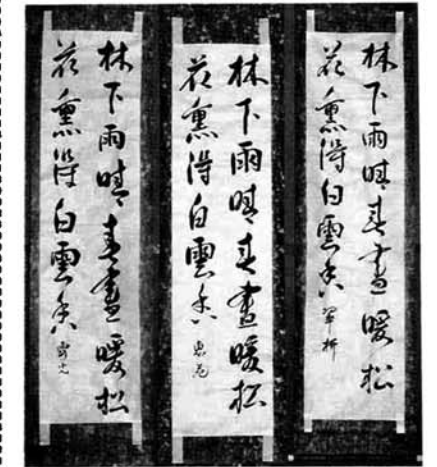 林下雨晴春晝暖松
花薰得白雲香 翠軒
林下雨晴春晝暖松
花薰得白雲香
林下雨晴春晝暖松
花薰得白雲香